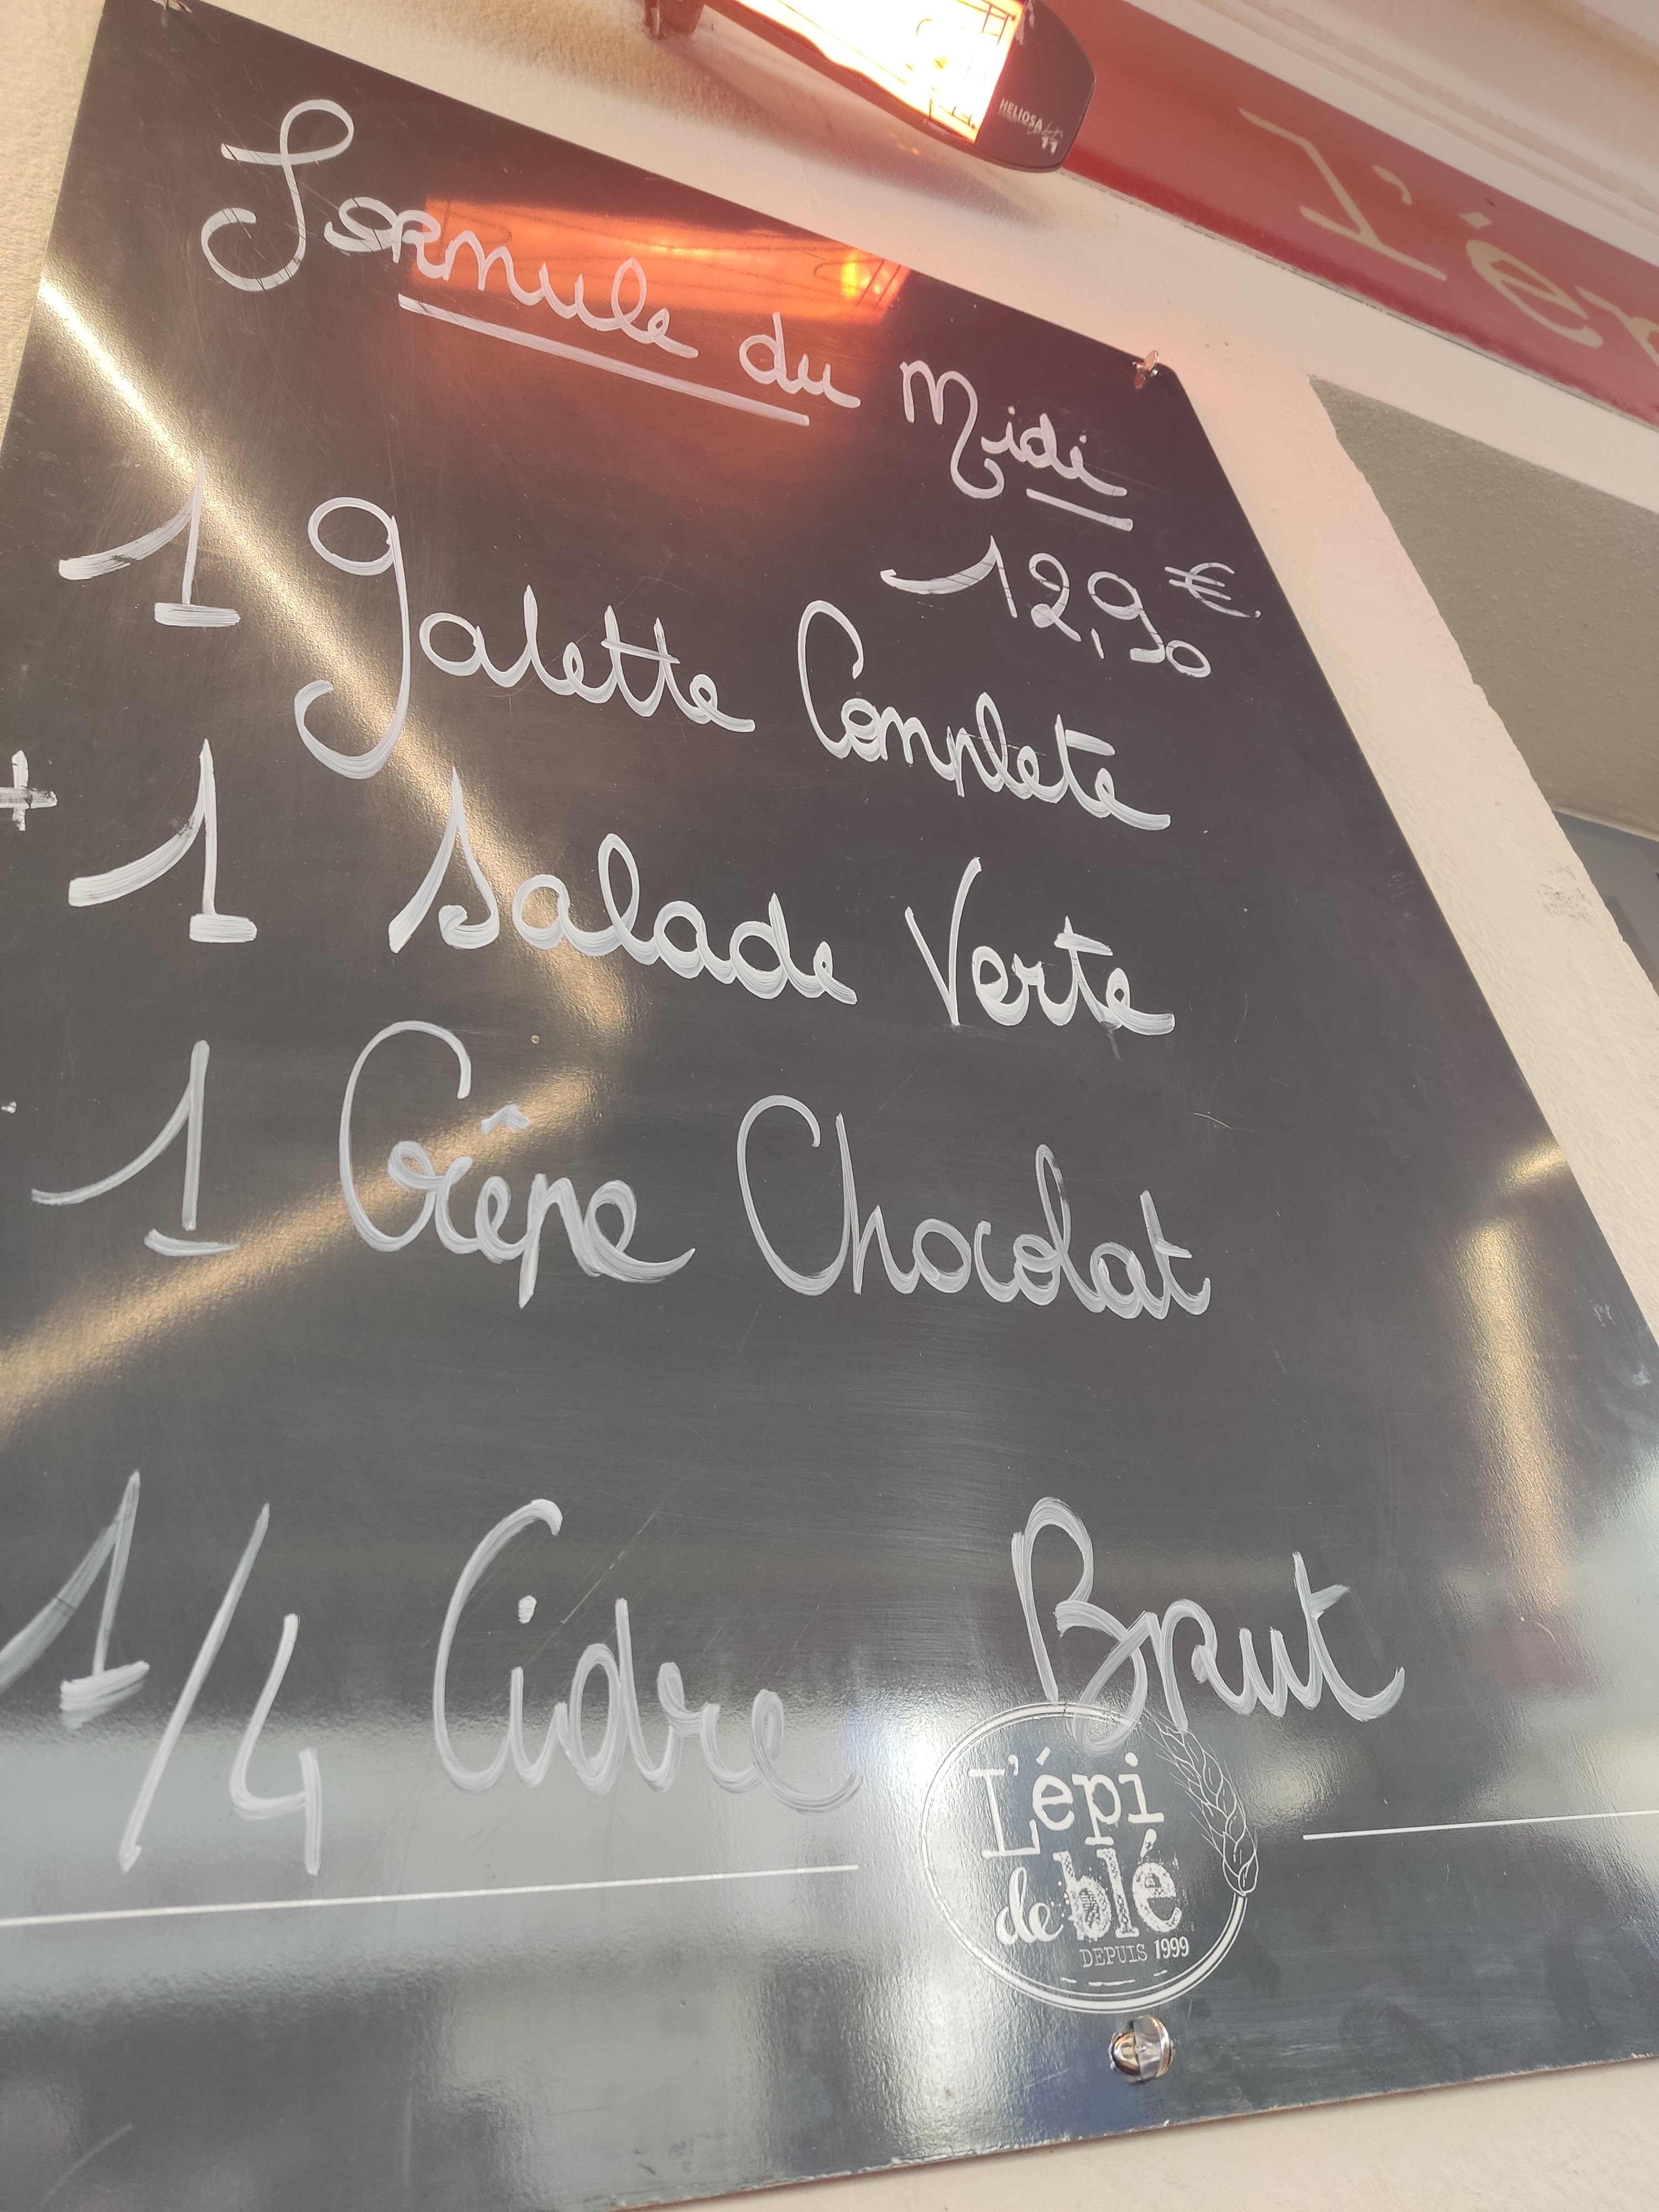 HELIOSA
11
L'ép
Formule du Midi
12,90€
1 galette Complete
+ 1 Salade Verte
1 Crêpe Chocolat
1/4 Cidre Brut
L'épi
de blé
DEPUIS 1999